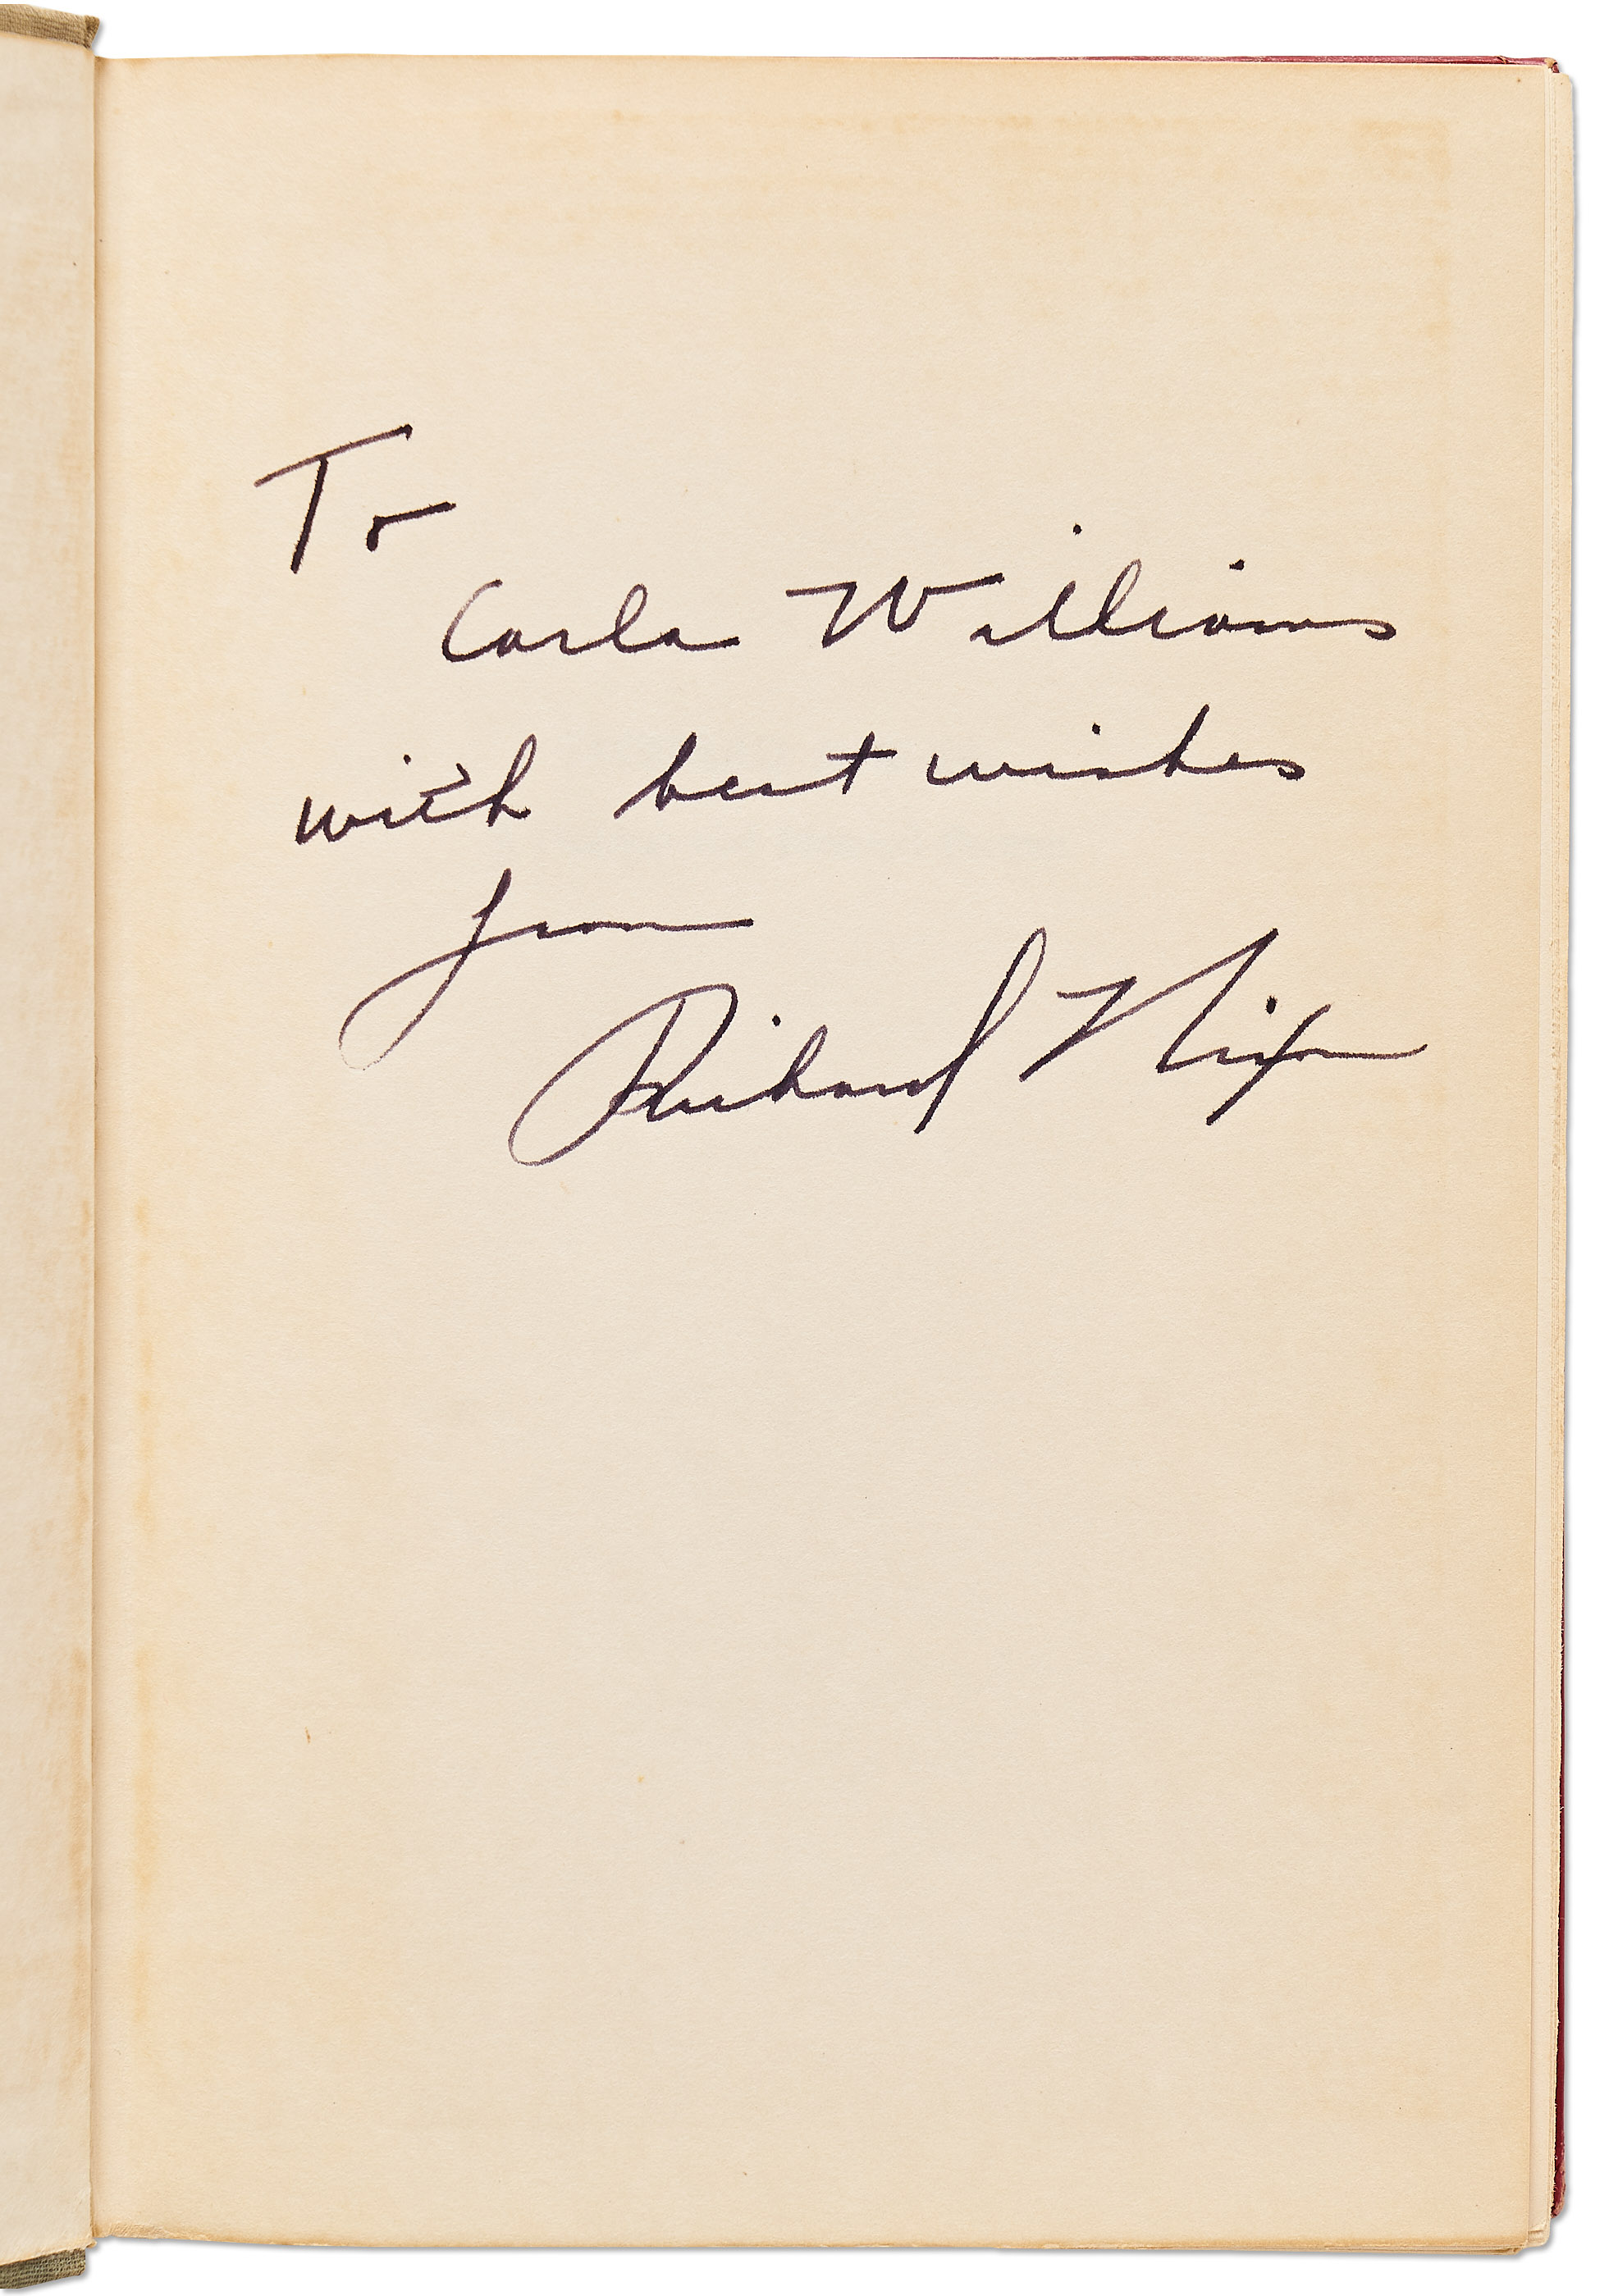 To
Carla Williams
with best wishes
from
Richard Nixon